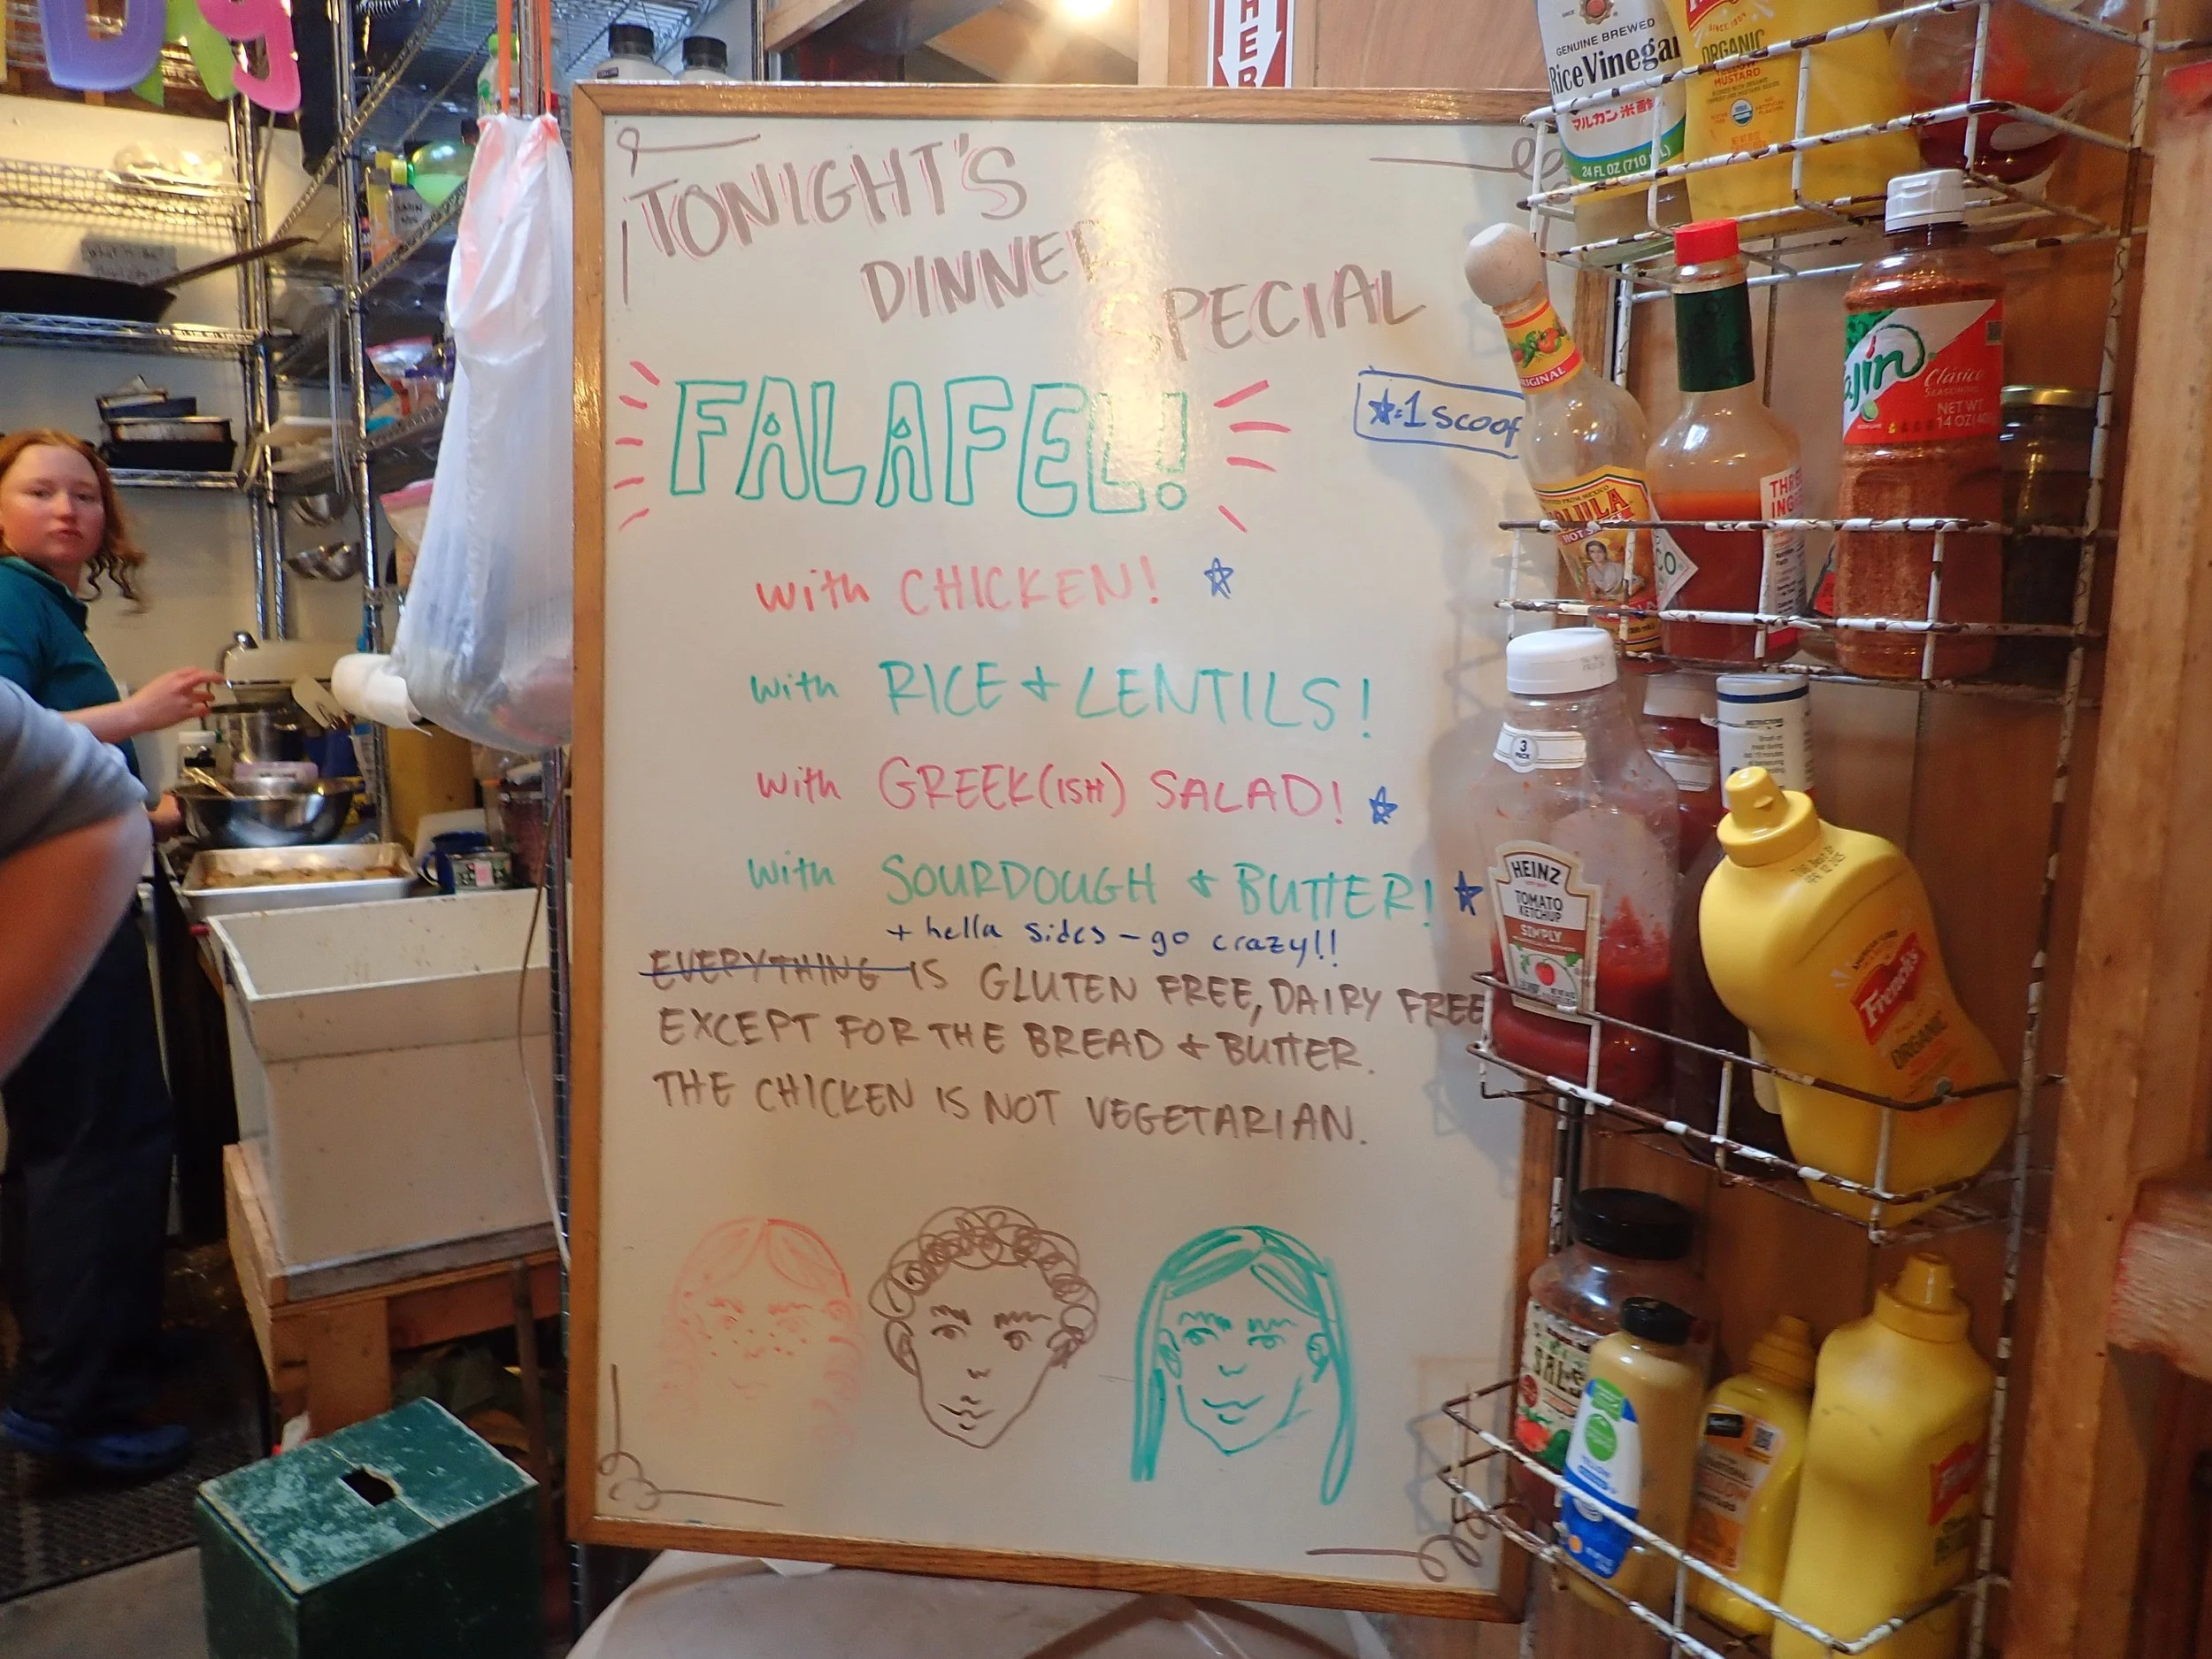 TONIGHT'S
DINNER
SPECIAL
FALAFEL!
☆=1 scoop
with CHICKEN! ☆
with RICE + LENTILS!
with GREEK(ISH) SALAD! ☆
with SOURDOUGH + BUTTER! ★
+ hella sides - go crazy!!
EVERYTHING IS GLUTEN FREE, DAIRY FREE
EXCEPT FOR THE BREAD + BUTTER.
THE CHICKEN IS NOT VEGETARIAN.
HER
GENUINE BREWED
Rice Vinegar
マルカン 米酢
24 FL OZ (710
ORGANIC
YELLOW
MUSTARD
ORIGINAL
HOT SAUCE
THRE
ING
ajín
Clásico
SEASONING
NET WT
14 OZ
3
PACK
HEINZ
TOMATO
KETCHUP
SIMPLY
French's
ORGANIC
SALS
YELLOW